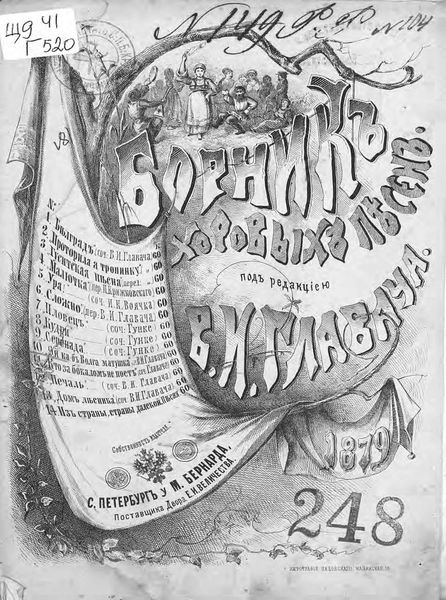 Щ9 Ч1
Г 520
№ 149
№ 104
СБОРНИКЪ
ХОРОВЫХЪ ПѢСЕНЪ.
подъ редакціею
В. И. ГЛАВАЧА.
№
1. Бѣлградъ (соч. В. И. Главача). 60
2. Проторила я тропинку
3. Гуситская пѣсня (перел.
4. Малютка (пер. П. Крижковскаго) 60
5. Ура! (соч. И. К. Воячка) 60
6. Сложно (пер. В. И. Главача) 60
7. Пловецъ (соч. Гунке) 60
8. Кудри (соч. Гунке) 60
9. Серенада (соч. Гунке) 60
10. Эй ка бъ Волга матушка
Кто за бокаломъ не поетъ
12. Печаль (соч. В. И. Главача) 60
13. Домъ лѣсника (соч. В. И. Главача) 60
14. Изъ страны, страны далекой
Собственность издателя.
С. ПЕТЕРБУРГЪ У М. БЕРНАРДА,
Поставщика Двора Е. И. ВЕЛИЧЕСТВА.
1879
248